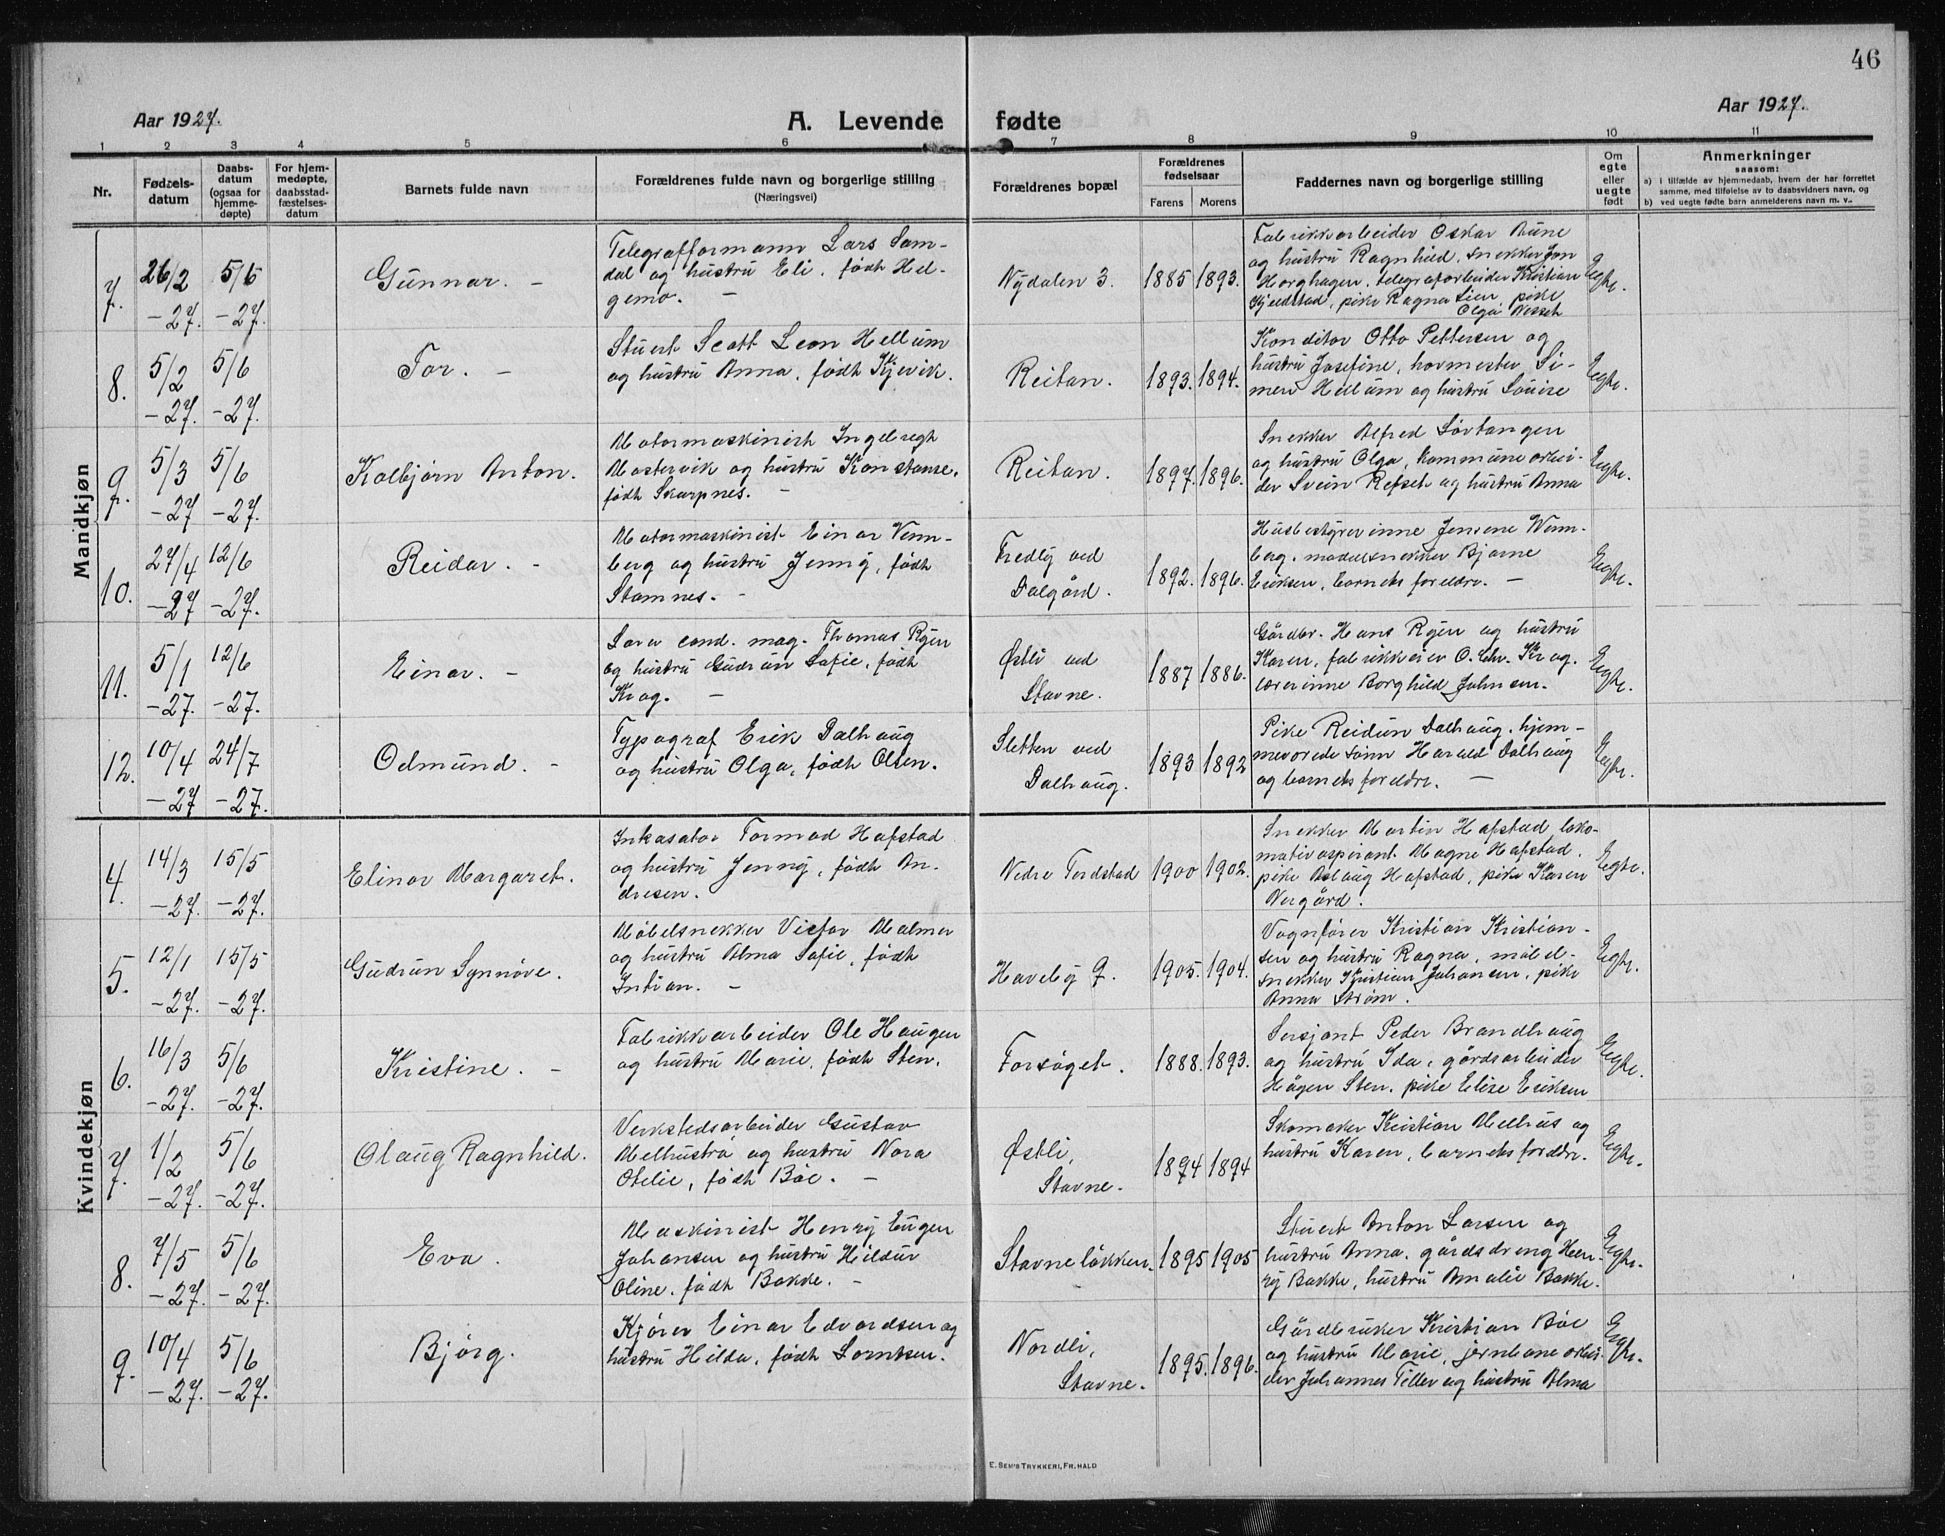 46
Aar 1927.
A. Levende fødte
Aar 1927.
1 2 3 4 5 6 7 8 9 10 11
Nr.
Fødsels-
datum
Daabs-
datum
(ogsaa for
hjemme-
døpte)
For hjem-
medøpte,
daabsstad-
fæstelses-
datum
Barnets fulde navn
Forældrenes fulde navn og borgerlige stilling
(Næringsvei)
Forældrenes bopæl
Forældrenes
fødselsaar
Farens
Morens
Faddernes navn og borgerlige stilling
Om
egte
eller
uegte
født
Anmerkninger
saasom:
a) i tilfælde av hjemmedaab, hvem der har forrettet
samme, med tilføielse av to daabsvidners navn, og
b) ved uegte fødte barn anmelderens navn m. v.
Mandkjøn
7. 26/2 -27. 5/6 -27.
Gunnar. -
Telegrafformann Lars Sam-
dal og hustru Eli, født Hel-
gemo. -
Nydalen 3.
1885 1893.
Fabrikkarbeider Oskar Aune
og hustru Ragnhild, snekker Jon
Horghagen, telegrafarbeider Kristian
Kjeldstad, pike Ragna Lien, pike
Olga Vesseth
Egte.
8. 5/2 -27. 5/6 -27.
Tor. -
Stuert Scott Leon Hellum
og hustru Anna, født Kjervik.
Reitan.
1893. 1894.
Konditor Otto Pettersen og
hustru Josefine, hovmester Si-
men Hellum og hustru Louise
Egte.
9. 5/3 -27 5/6 -27.
Kolbjørn Anton.
Motormaskinist Ingebregt
Mostervik og hustru Konstanse,
født Skarpnes. -
Reitan.
1897. 1896.
Snekker Alfred Sörtangen
og hustru Olga, kommunearbei-
der Svein Refseth og hustru Anna
Egte.
10. 27/4 -27 12/6 -27.
Reidar. -
Motormaskinist Einar Venn-
berg og hustru Jenny, født
Stamnes. -
Fredly ved
Dalgård.
1892. 1896.
Husbestyrerinne Jensene Wenn-
berg, modellsnekker Bjarne
Eriksen, barnets foreldre. -
Egte.
11. 5/1 -27. 12/6 -27.
Einar. -
Lærer cand. mag. Thomas Ryen
og hustru Gudrun Sofie, født
Krog. -
Østli ved
Stavne.
1887 1886.
Gårdbr. Hans Ryen og hustru
Karen, fabrikkeier O. Chr. Krog,
lærerinne Borghild Johnsen.
Egte.
12. 10/4 -27 24/7 -27.
Odmund. -
Typograf Erik Dalhaug
og hustru Olga, født Olsen.
Sletten ved
Dalhaug.
1893 1892
Pike Reidun Dalhaug, hjem-
meværende sønn Harald Dalhaug
og barnets foreldre. -
Egte.
Kvindekjøn
4. 14/3 -27. 15/5 -27.
Elinor Margaret.
Inkasator Tormod Hafstad
og hustru Jenny, født An-
dresen.
Nedre Ferdstad
1900 1902.
Snekker Martin Hafstad, loko-
motivaspirant Magne Hafstad,
pike Aslaug Hafstad, pike Karen
Nergård.
Egte.
5. 12/1 -27. 15/5 -27.
Gudrun Synnöve.
Möbelsnekker Victor Malmer
og hustru Alma Sofie, født
Intian. -
Haveby 9.
1905. 1904.
Vognfører Kristian Kristian-
sen og hustru Ragna, möbel-
snekker Kristian Johansen, pike
Anna Ström.
Egte.
6. 16/3 -27. 5/6 -27.
Kristine. -
Fabrikkarbeider Ole Haugen
og hustru Marie, født Sten.
Forsöget.
1888. 1893.
Sersjant Peder Brandhaug
og hustru Ida, gårdsarbeider
Hågen Sten, pike Elise Eriksen
Egte.
7. 1/2 -27. 5/6 -27.
Olaug Ragnhild.
Verkstedsarbeider Gustav
Melhustrå og hustru Nora
Otelie, født Böe. -
Østli,
Stavne.
1894 1894
Skomaker Kristian Melhus og
hustru Karen, barnets foreldre.
Egte.
8. 7/5 -27. 5/6 -27.
Eva.
Maskinist Henry Eugen
Johansen og hustru Hildur
Oline, født Bakke. -
Stavneløkken.
1895 1905
Stuert Anton Larsen og
hustru Anna, gårdsdreng Hen-
ry Bakke, hustru Amalie Bakke.
Egte.
9. 10/4 -27. 5/6 -27.
Bjørg.
Kjører Einar Edvardsen og
hustru Hilda, født Lorntsen.
Nordli,
Stavne.
1895. 1896.
Gårdbruker Kristian Böe
og hustru Marie, jernbanearbei-
der Johannes Tiller og hustru Alma
Egte.
E. SEM'S TRYKKERI, FR.HALD